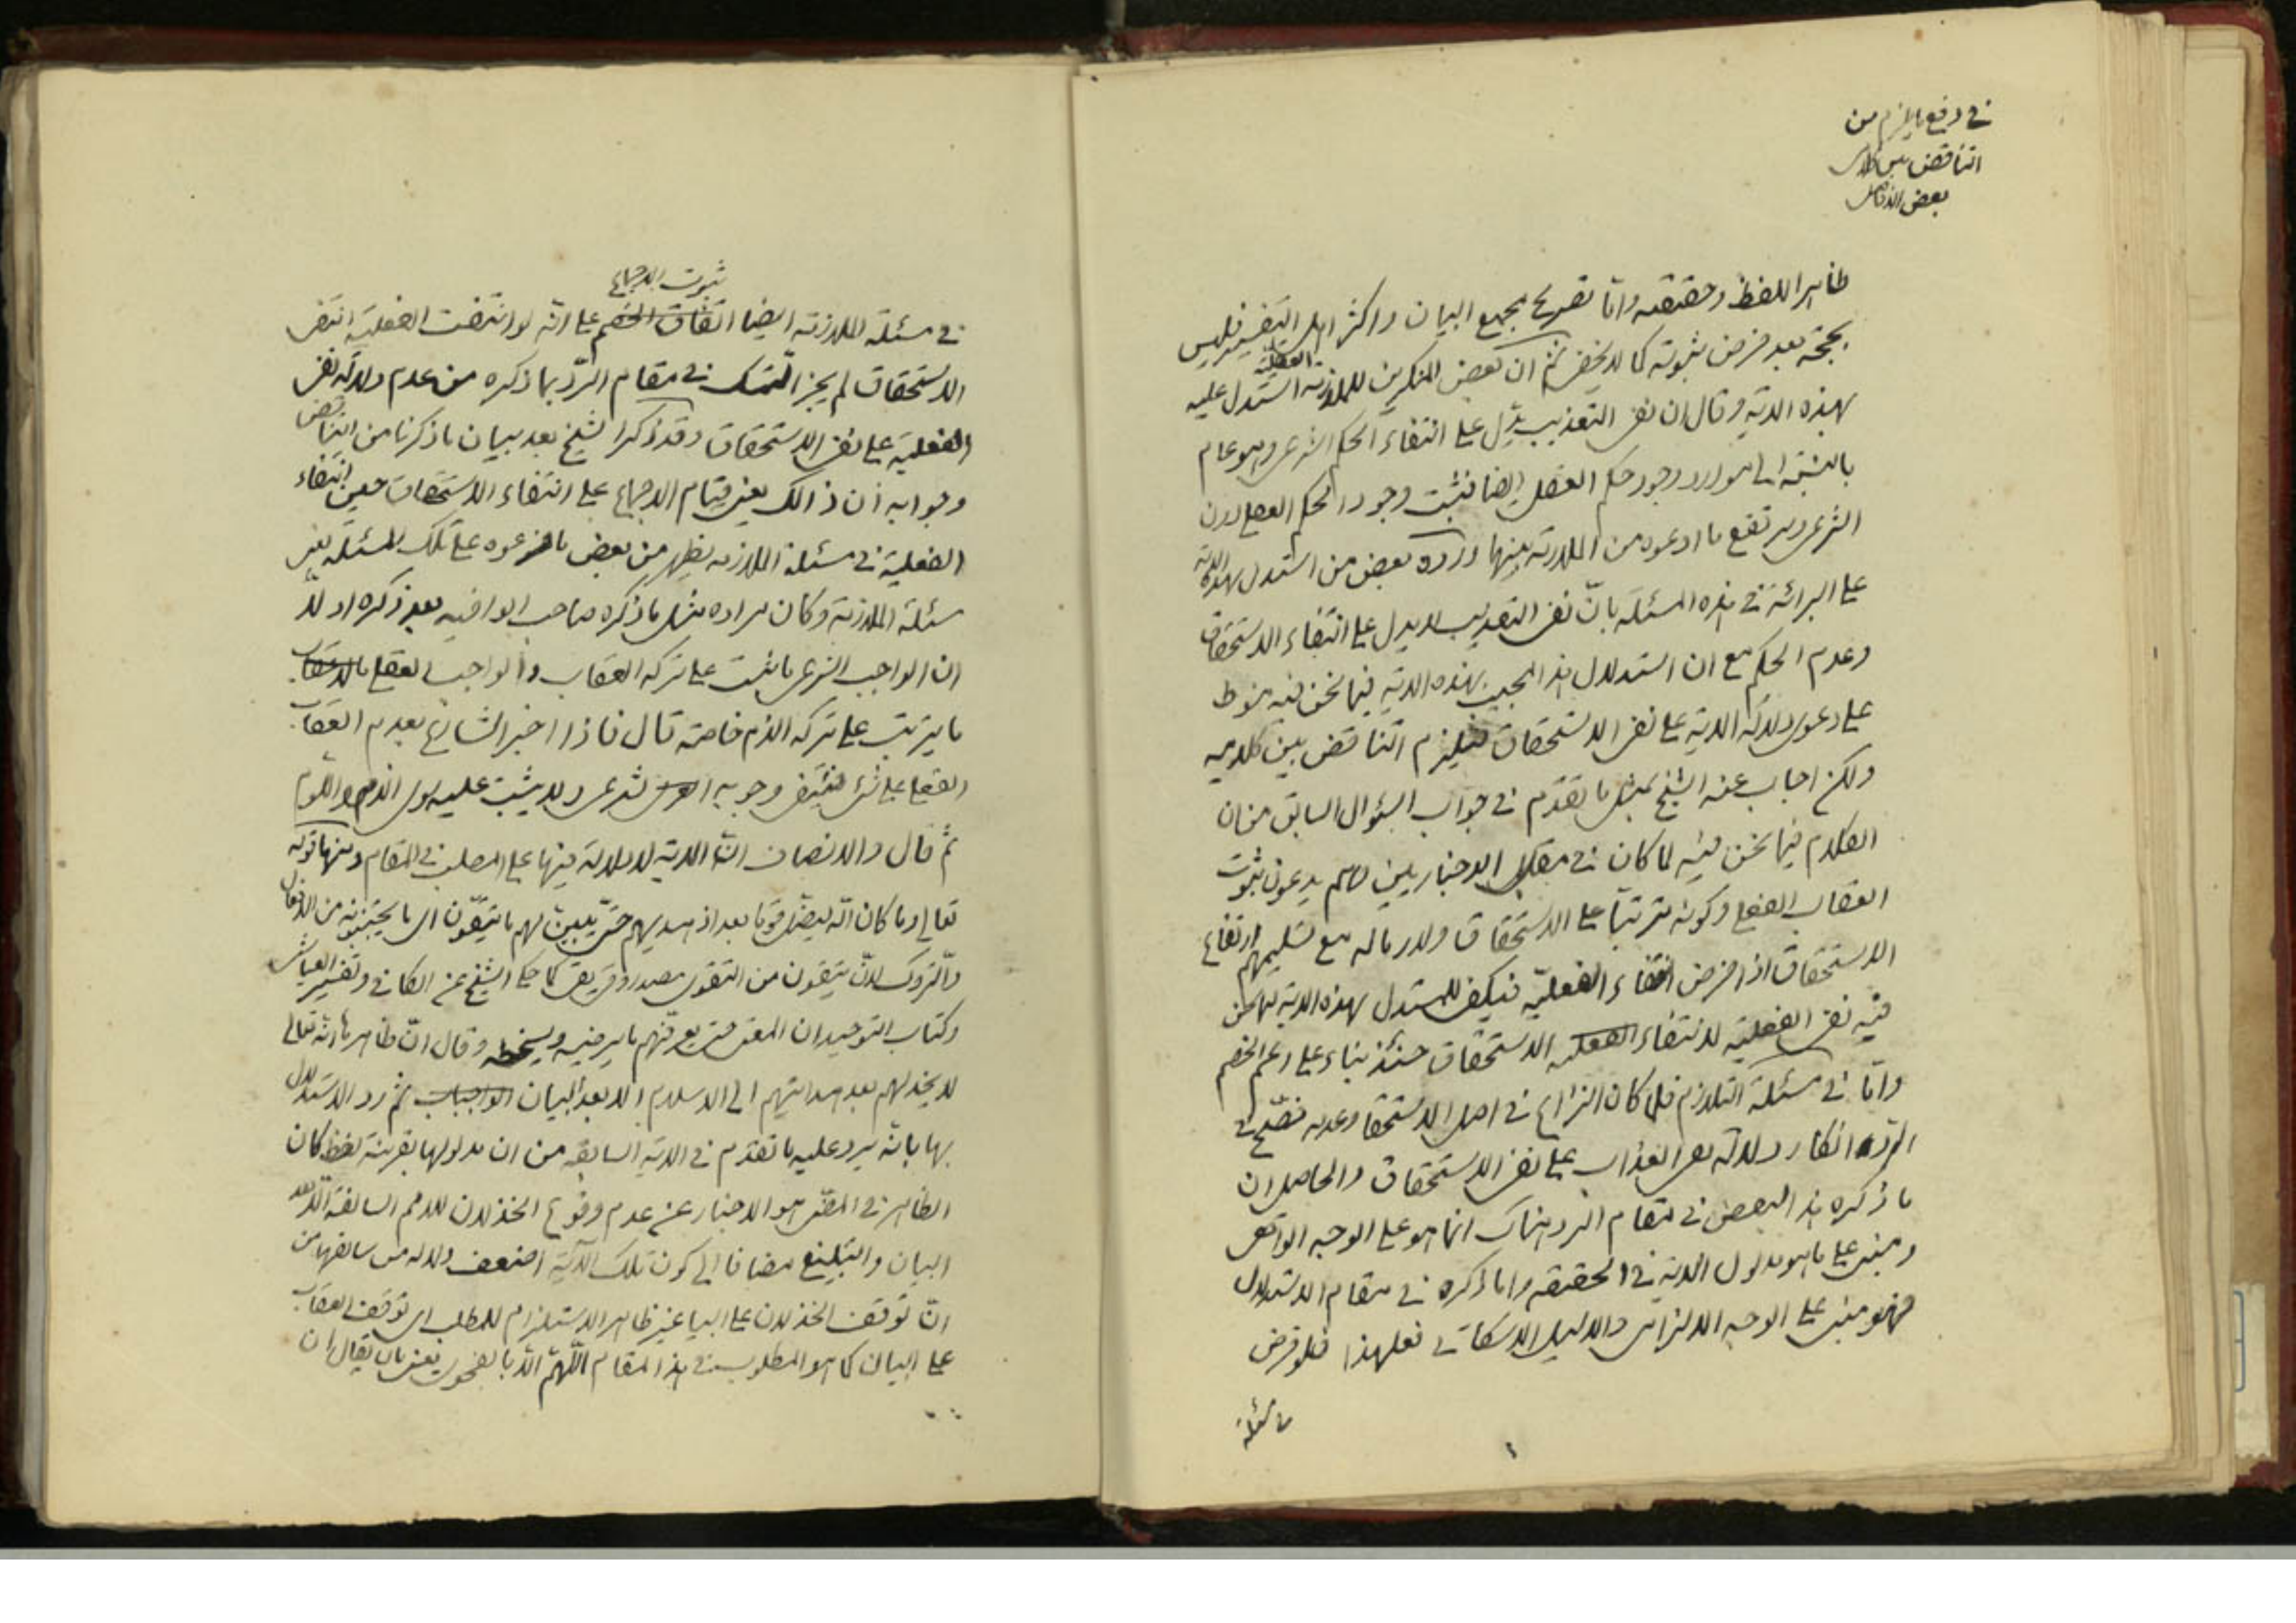 في دفع ما يلزم من
التناقض بين كلامي
بعض الافاضل
ظاهر اللفظ وحقيقته واما تصريح مجمع البيان واكثر اهل التفسير فليس
بحجة بعد فرض ثبوته كما لا يخفى ثم ان بعض المنكرين للملازمة العقلية استدل عليه
بهذه الاية وقال ان نفي التعذيب يدل على انتفاء الحكم الشرعي وهو عام
بالنسبة الى موارد وجود حكم العقل ايضا فثبت وجود الحكم العقلي دون
الشرعي ويرتفع ما ادعوه من الملازمة بينهما ورده بعض من استدل بهذه الاية
على البرائة في هذه المسئلة بانّ نفي التعذيب لا يدل على انتفاء الاستحقاق
وعدم الحكم مع ان استدلال هذا المجيب بهذه الاية فيما نحن فيه منوط
على دعوى دلالة الاية على نفي الاستحقاق فيلزم التناقض بين كلاميه
ولكن اجاب عنه الشيخ بمثل ما تقدم في جواب السؤال السابق من ان
الكلام فيما نحن فيه لما كان في مقابل الاخباريين وهم يدعون ثبوت
العقاب الفعلي وكونه مترتبا على الاستحقاق ولازما له مع تسليمهم ارتفاع
الاستحقاق اذا فرض انتفاء الفعليّة فيكفي للمستدل بهذه الاية فيما نحن
فيه نفي الفعلية لانتفاء الفعلية الاستحقاق حينئذ بناء على زعم الخصم
واما في مسئلة التلازم فلما كان النزاع في اصل الاستحقاق وعدمه فصّح في
الرد انكار دلالة نفي العذاب على نفي الاستحقاق والحاصل ان
ما ذكره هذا البعض في مقام الرد هناك انما هو على الوجه الواقعي
ومبني على ما هو مدلول الاية في الحقيقة واما ذكره في مقام الاستدلال
فهو مبني على الوجه الالزامي والدليل الاسكاتي فعلى هذا فلو فرض
في مسئلة
ثبوت الاجماع
في مسئلة الملازمة ايضا اتفاق الخصم على انه لو انتفت الفعلية انتفى
الاستحقاق لم يجز التمسك في مقام الردّ بما ذكره من عدم دلالة نفي
الفعلية على نفي الاستحقاق وقد ذكر الشيخ بعد بيان ما ذكرنا من التناقض
وجوابه ان ذالك يعني قيام الاجماع على انتفاء الاستحقاق حين انتفاء
الفعلية في مسئلة الملازمه يظهر من بعض ما فرعوه على تلك المسئلة يعني
مسئلة الملازمة وكان مراده مثل ما ذكره صاحب الوافيه بعد ذكره اولا
ان الواجب الشرعي ما ثبت على تركه العقاب والواجب العقلي ما لا عقاب
ما يترتب على تركه الذم خاصة قال فاذا اخبر الشارع بعدم العقاب
الفعلي على شيء فينتفي وجوبه الشرعي ولا يثبت عليه سوى الذم واللوم
ثم قال والانصاف انّ الاية لا دلالة فيها على المطلب في المقام ومنها قوله
تعالى وما كان الله ليضلّ قوما بعد اذ هديهم حتّى يبين لهم ما يتقون اي ما يجتنبونه من الافعال
والتروك لانّ يتقون من التقوى مصدر وقى يقي كما حكى الشيخ عن الكافي وتفسير العياشي
وكتاب التوحيد ان المعنى حتى يعرفهم ما يرضيه ويسخطه وقال انّ ظاهرها انه تعالى
لا يخذلهم بعد هدايتهم الى الاسلام الا بعد البيان الواجبات ثم رد الاستدلال
بها بانه يرد عليه ما تقدم في الاية السابقه من ان مدلولها بقرينة لفظ كان
الظاهر في المضي هو الاخبار عن عدم وقوع الخذلان للامم السالفة الا بعد
البيان والتبليغ مضافا الى كون تلك الاية اضعف دلالة من سابقها من
انّ توقف الخذلان على البيان غير ظاهر الاستلزام للمطلب اي توقف العقاب
على البيان كما هو المطلوب في هذا المقام اللّهمّ الّا بالفحوى يعني بان يقال ان